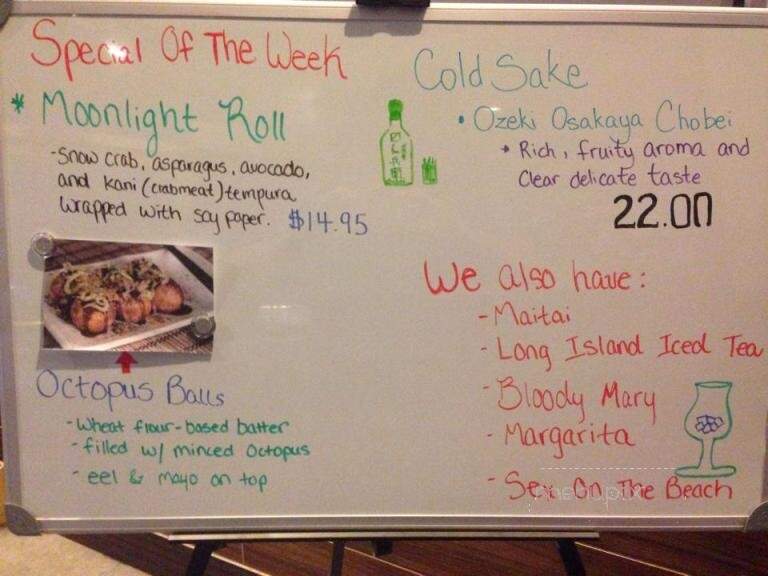 Special Of The Week
* Moonlight Roll
- Snow crab, asparagus, avocado,
and kani (crabmeat) tempura
wrapped with soy paper. $14.95
Octopus Balls
- wheat flour-based batter
- filled w/ minced octopus
- eel & mayo on top
Cold Sake
• Ozeki Osakaya Chobei
• Rich, fruity aroma and
Clear delicate taste
22.00
We also have:
- Maitai
- Long Island Iced Tea
- Bloody Mary
- Margarita
- Sex On The Beach